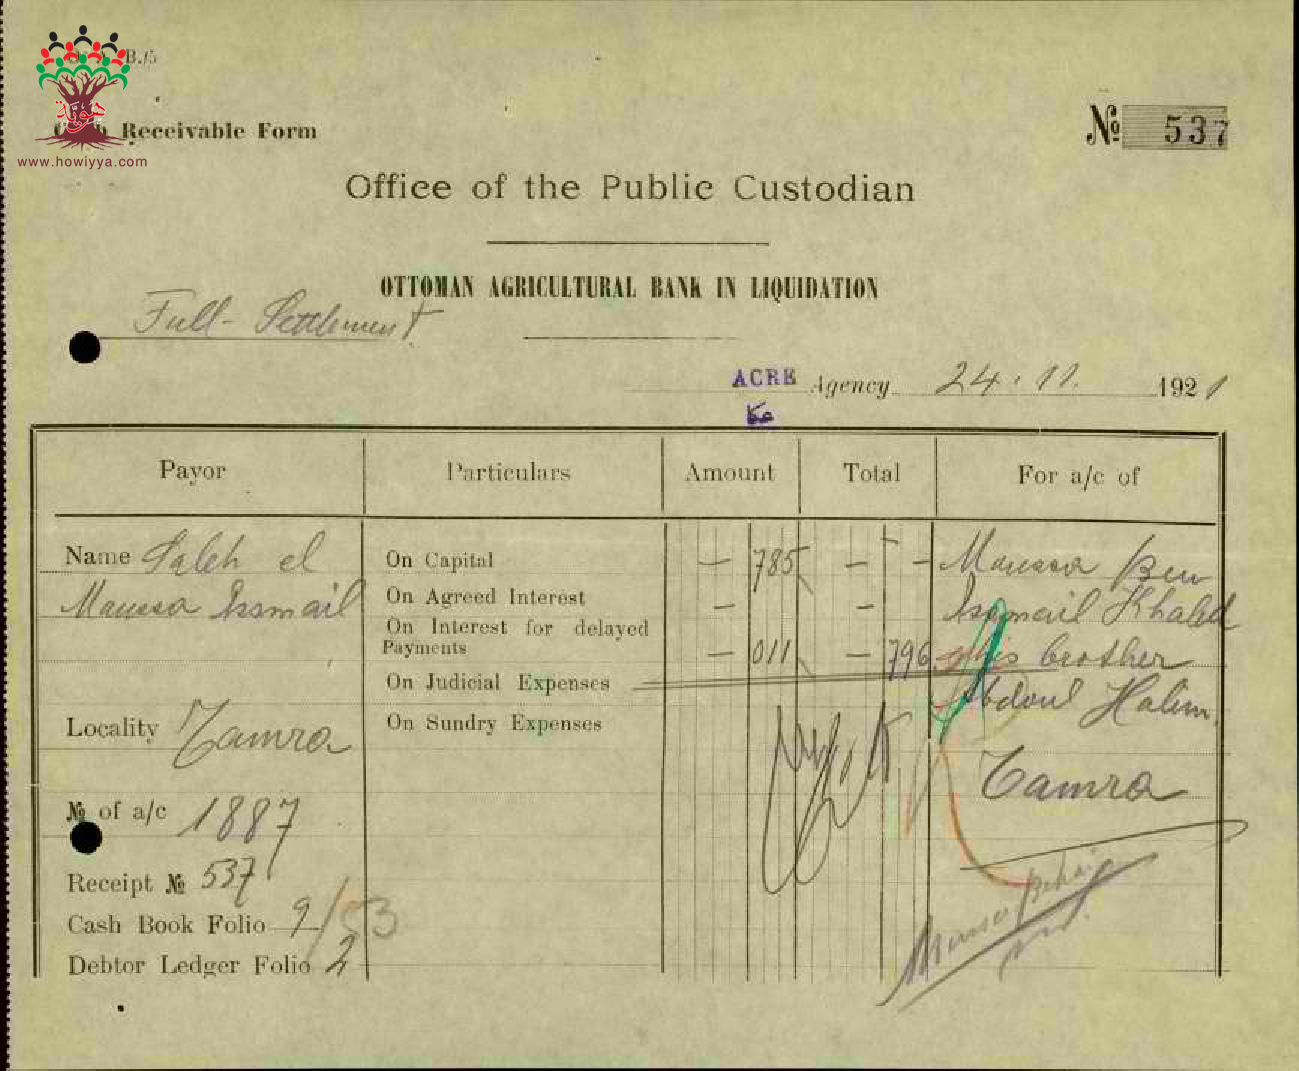 B.15
Cash Receivable Form
www.howiyya.com
№ 537
Office of the Public Custodian
OTTOMAN AGRICULTURAL BANK IN LIQUIDATION
Full-Settlement
ACRE Agency 24.11. 1921
عكا
Payor Particulars Amount Total For a/c of
Name Saleh el
Moussa Ismail
Locality Tamra
№ of a/c 1887
Receipt № 537
Cash Book Folio 9/53
Debtor Ledger Folio 2
On Capital — 785 — —
On Agreed Interest — —
On Interest for delayed
Payments — 011 — 796
On Judicial Expenses
On Sundry Expenses
Moussa Ben
Ismail Khaled
his brother
Abdoul Halim.
Tamra